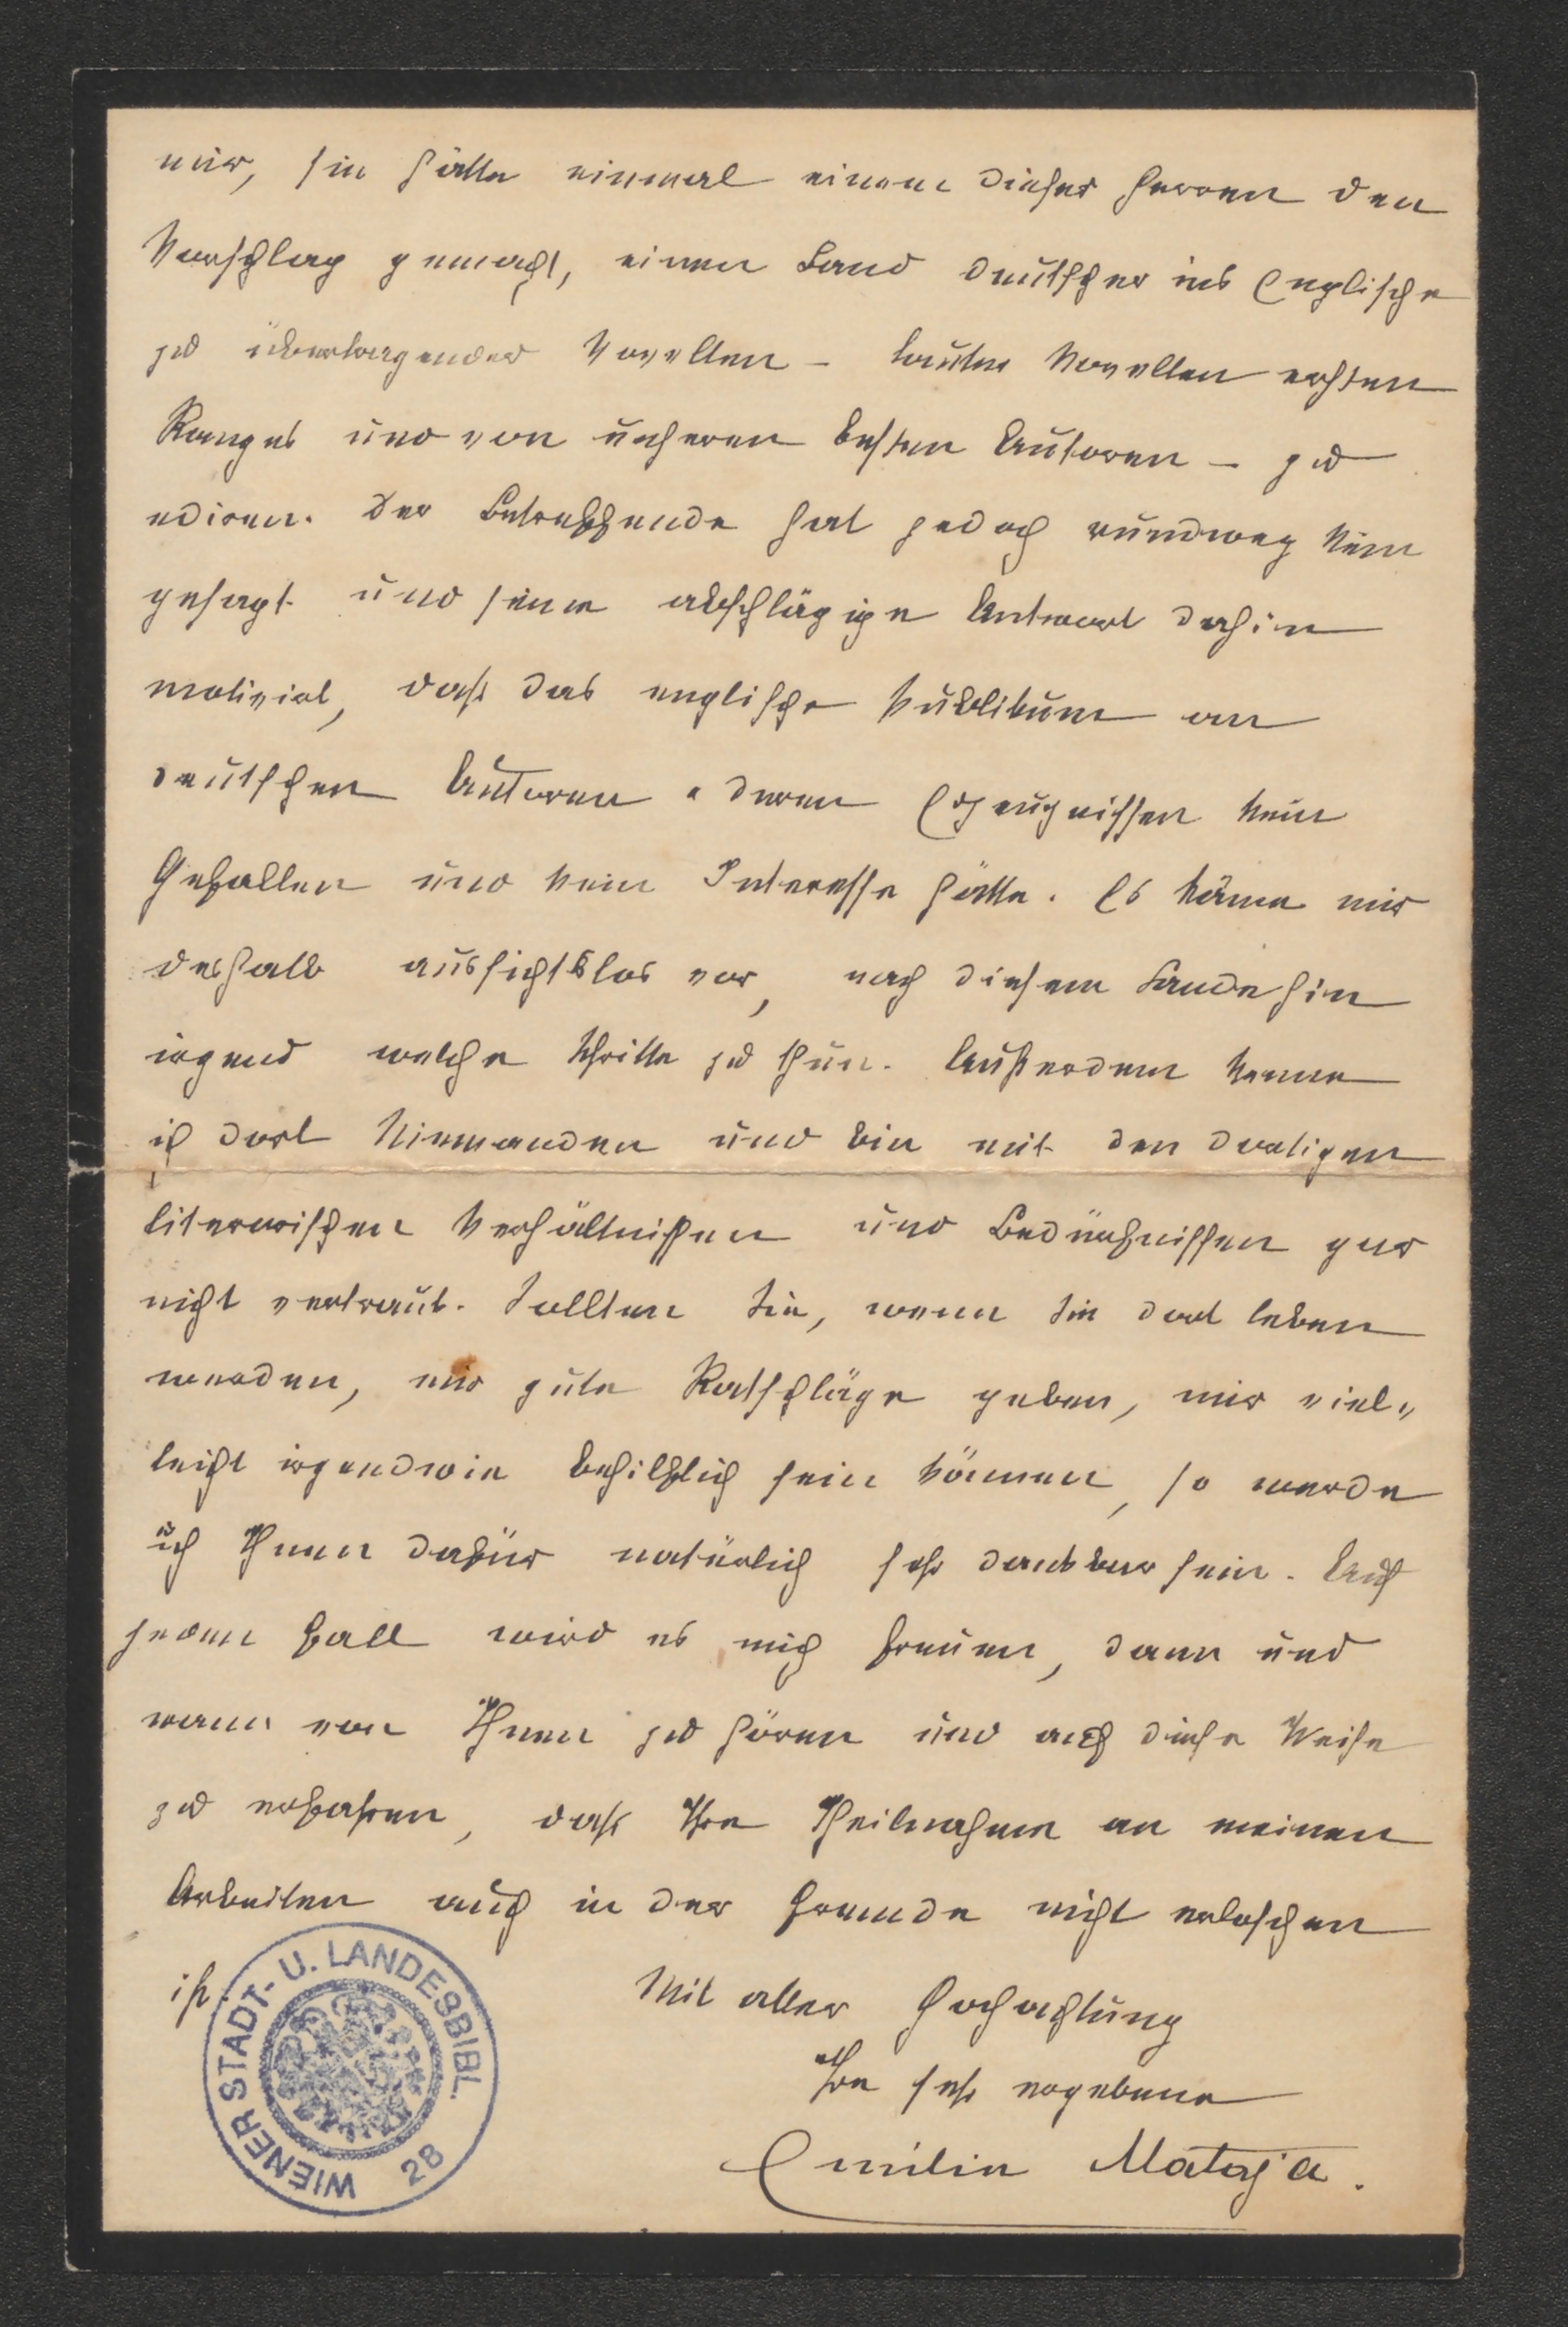 mir, sie hätte einmal einem dieser Herren den
Vorschlag gemacht, einen Band deutscher ins Englische
zu übertragender Novellen – lauter Novellen ersten
Ranges und von unseren besten Autoren – zu
ediren. Der Betreffende hat jedoch rundweg Nein
gesagt und seine abschlägige Antwort dahin
motivirt, daß das englische Publikum an
deutschen Autoren u deren Erzeugnissen kein
Gefallen und kein Interesse hätte. Es käme mir
deshalb aussichtslos vor, nach diesem Lande hin
irgend welche Schritte zu thun. Außerdem kenne
ich dort Niemanden und bin mit den dortigen
literarischen Verhältnissen und Bedürfnissen gar
nicht vertraut. Sollten Sie, wenn Sie dort leben
werden, mir gute Ratschläge geben, mir viel-
leicht irgendwie behilflich sein können, so werde
ich Ihnen dafür natürlich sehr dankbar sein. Auf
jeden Fall wird es mich freuen, dann und
wann von Ihnen zu hören und auf diese Weise
zu erfahren, daß Ihre Theilnahme an meinen
Arbeiten auch in der Fremde nicht erloschen
ist.
Mit aller Hochachtung
Ihre sehr ergebene
Emilie Mataja.
WIENER STADT- U. LANDESBIBL.
28